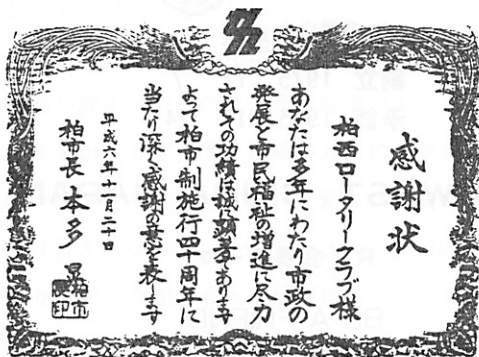 感謝状
柏西ロータリークラブ様
あなたは多年にわたり市政の
発展と市民福祉の増進に尽力
されその功績は誠に顕著であります
よって柏市制施行四十周年に
当たり深く感謝の意を表します
平成六年十一月二十日
柏市長 本多 晃